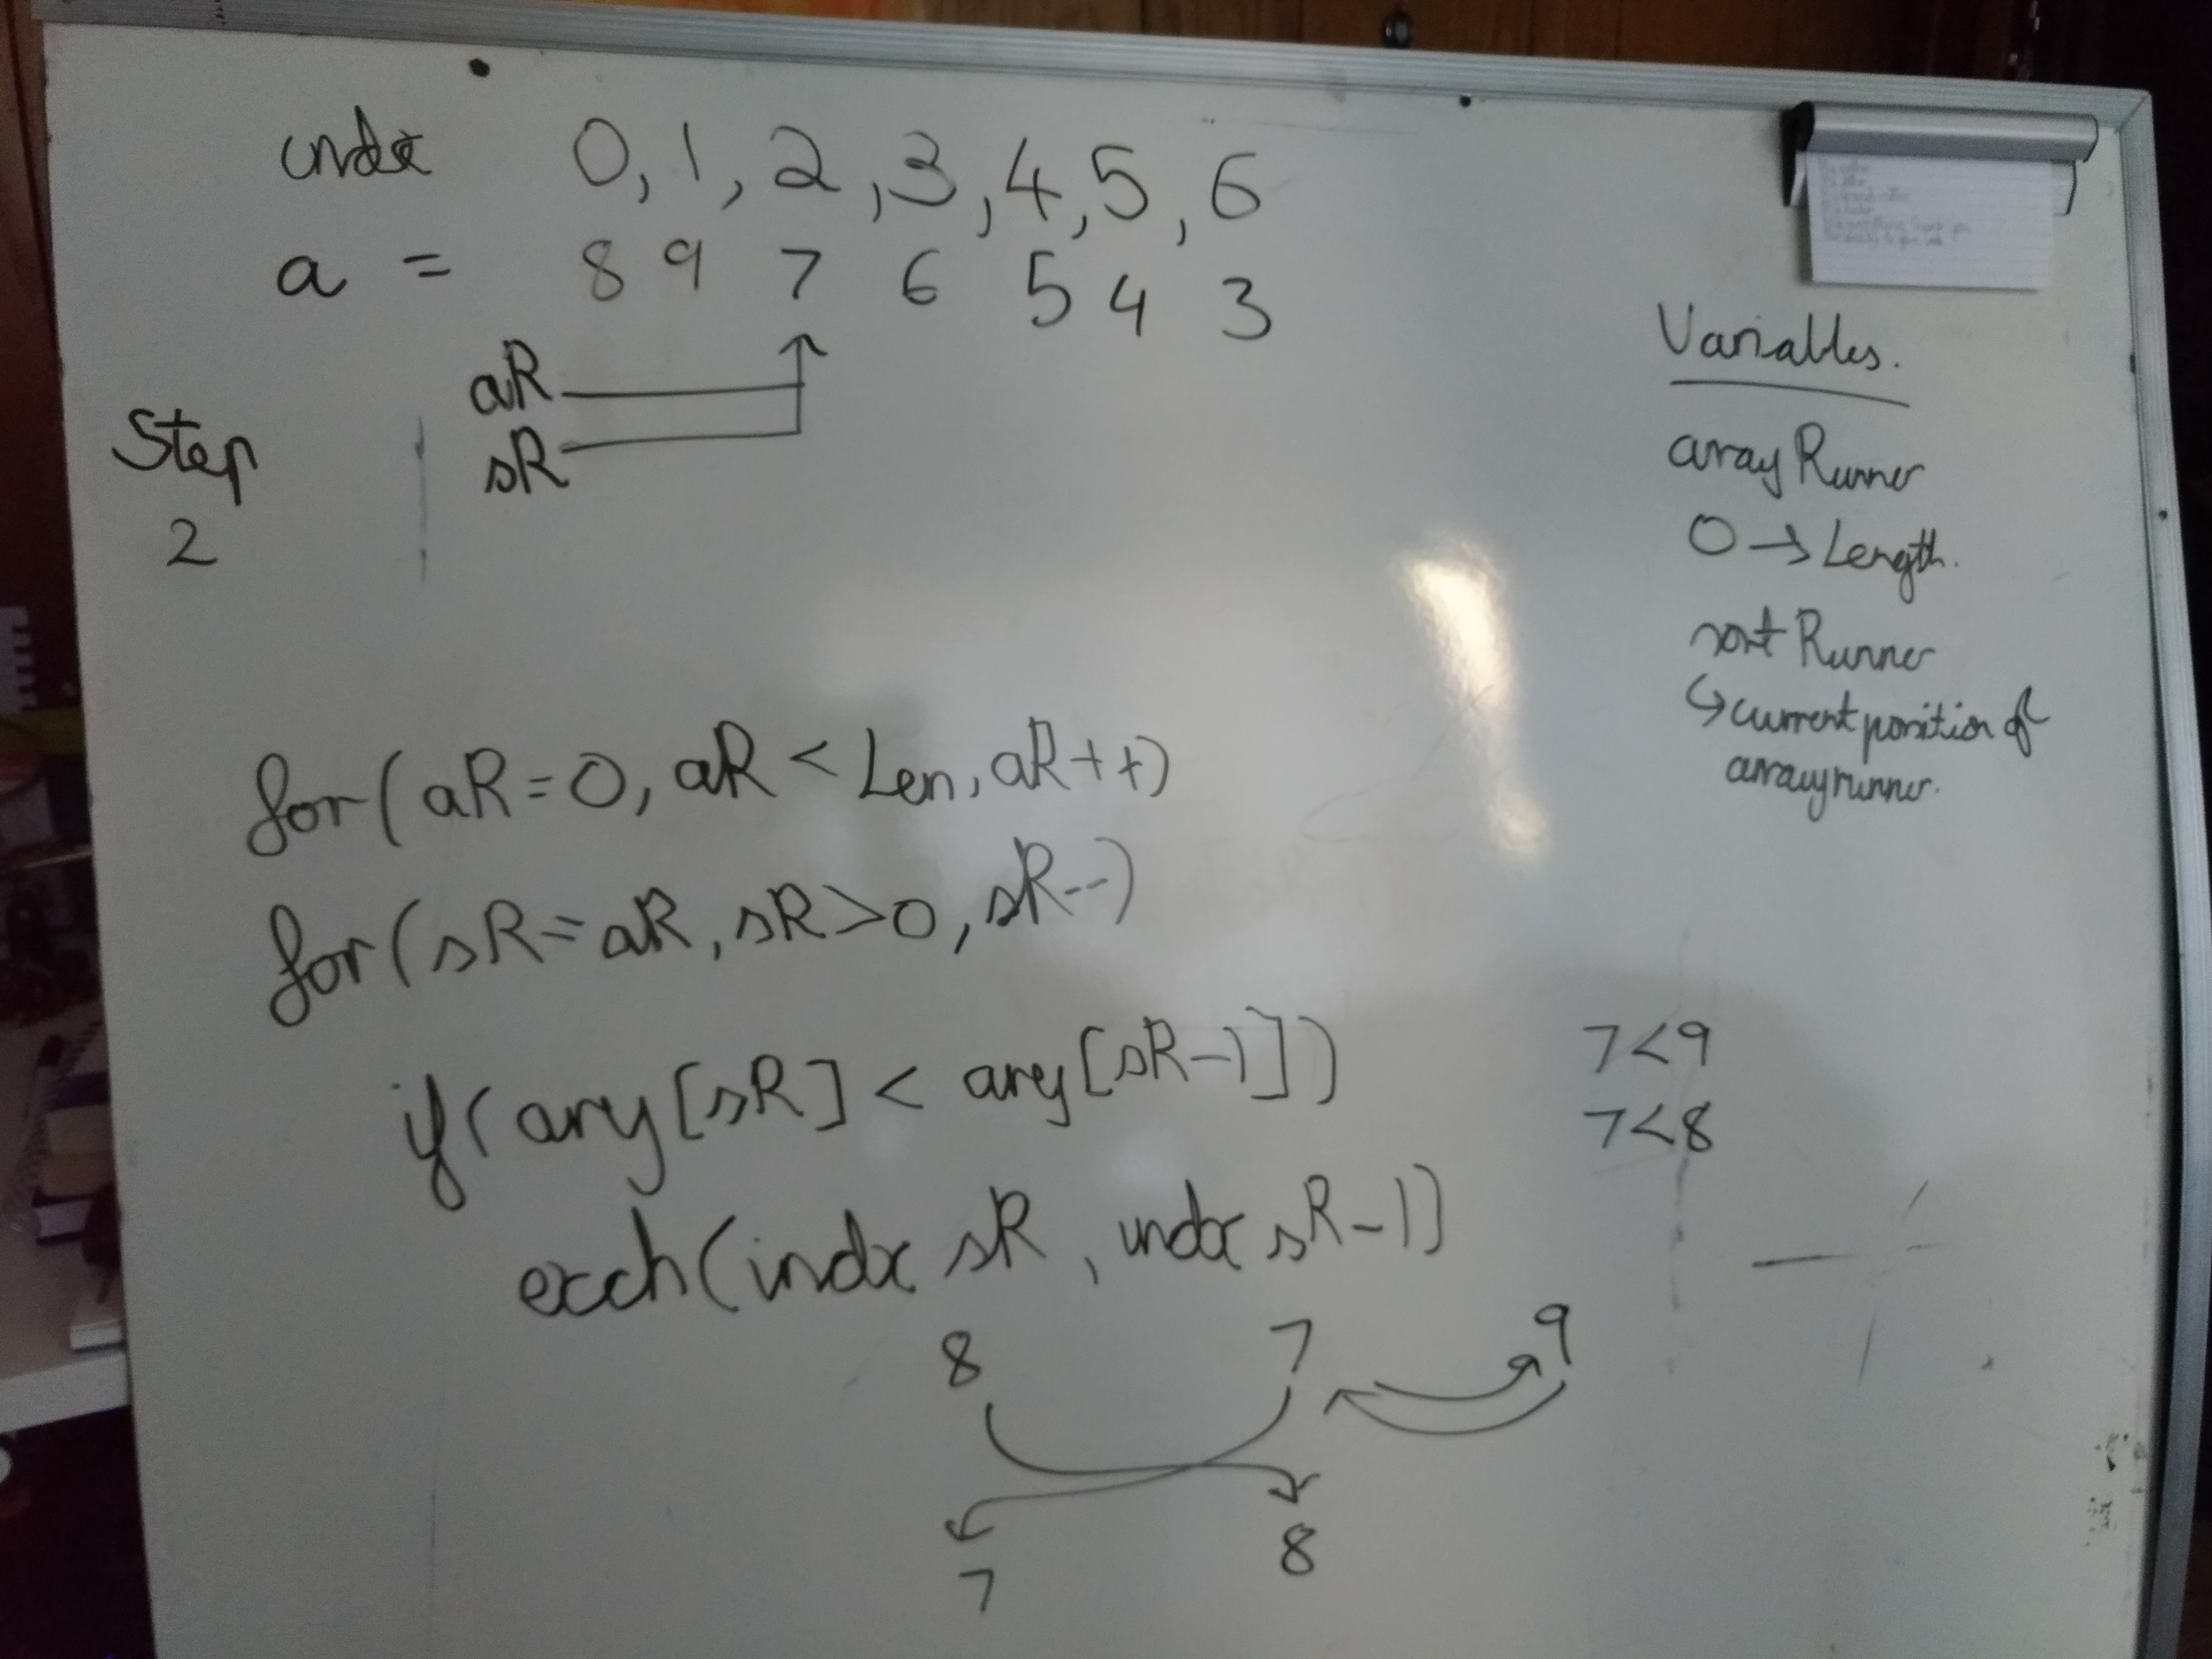 indx 0, 1, 2, 3, 4, 5, 6
a = 8 9 7 6 5 4 3
aR
sR
Step
2
Variables.
array Runner
0 → Length.
sort Runner
↳ current position of
arrayrunner.
for(aR=0, aR < Len, aR++)
for(sR=aR, sR>0, sR--)
if(ary[sR] < ary[sR-1])
7<9
7<8
exch(indx sR, indx sR-1)
8 7 9
7 8